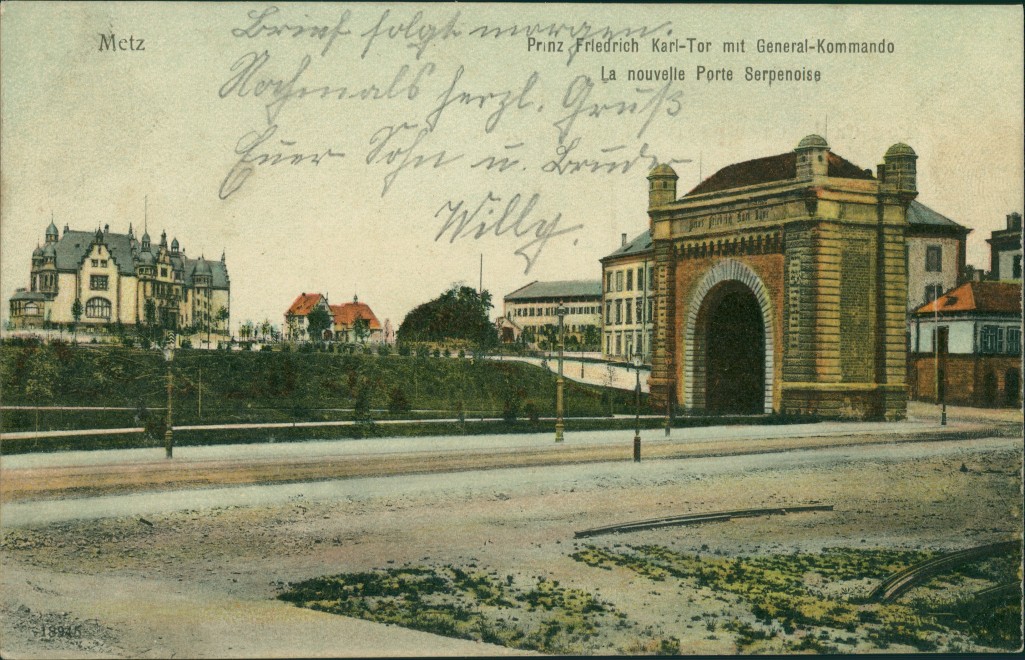 Metz
Prinz Friedrich Karl-Tor mit General-Kommando
La nouvelle Porte Serpenoise
Brief folgt morgen.
Nochmals herzl. Gruß
Euer Sohn u. Bruder
Willy.
Prinz Friedrich Karl Tor